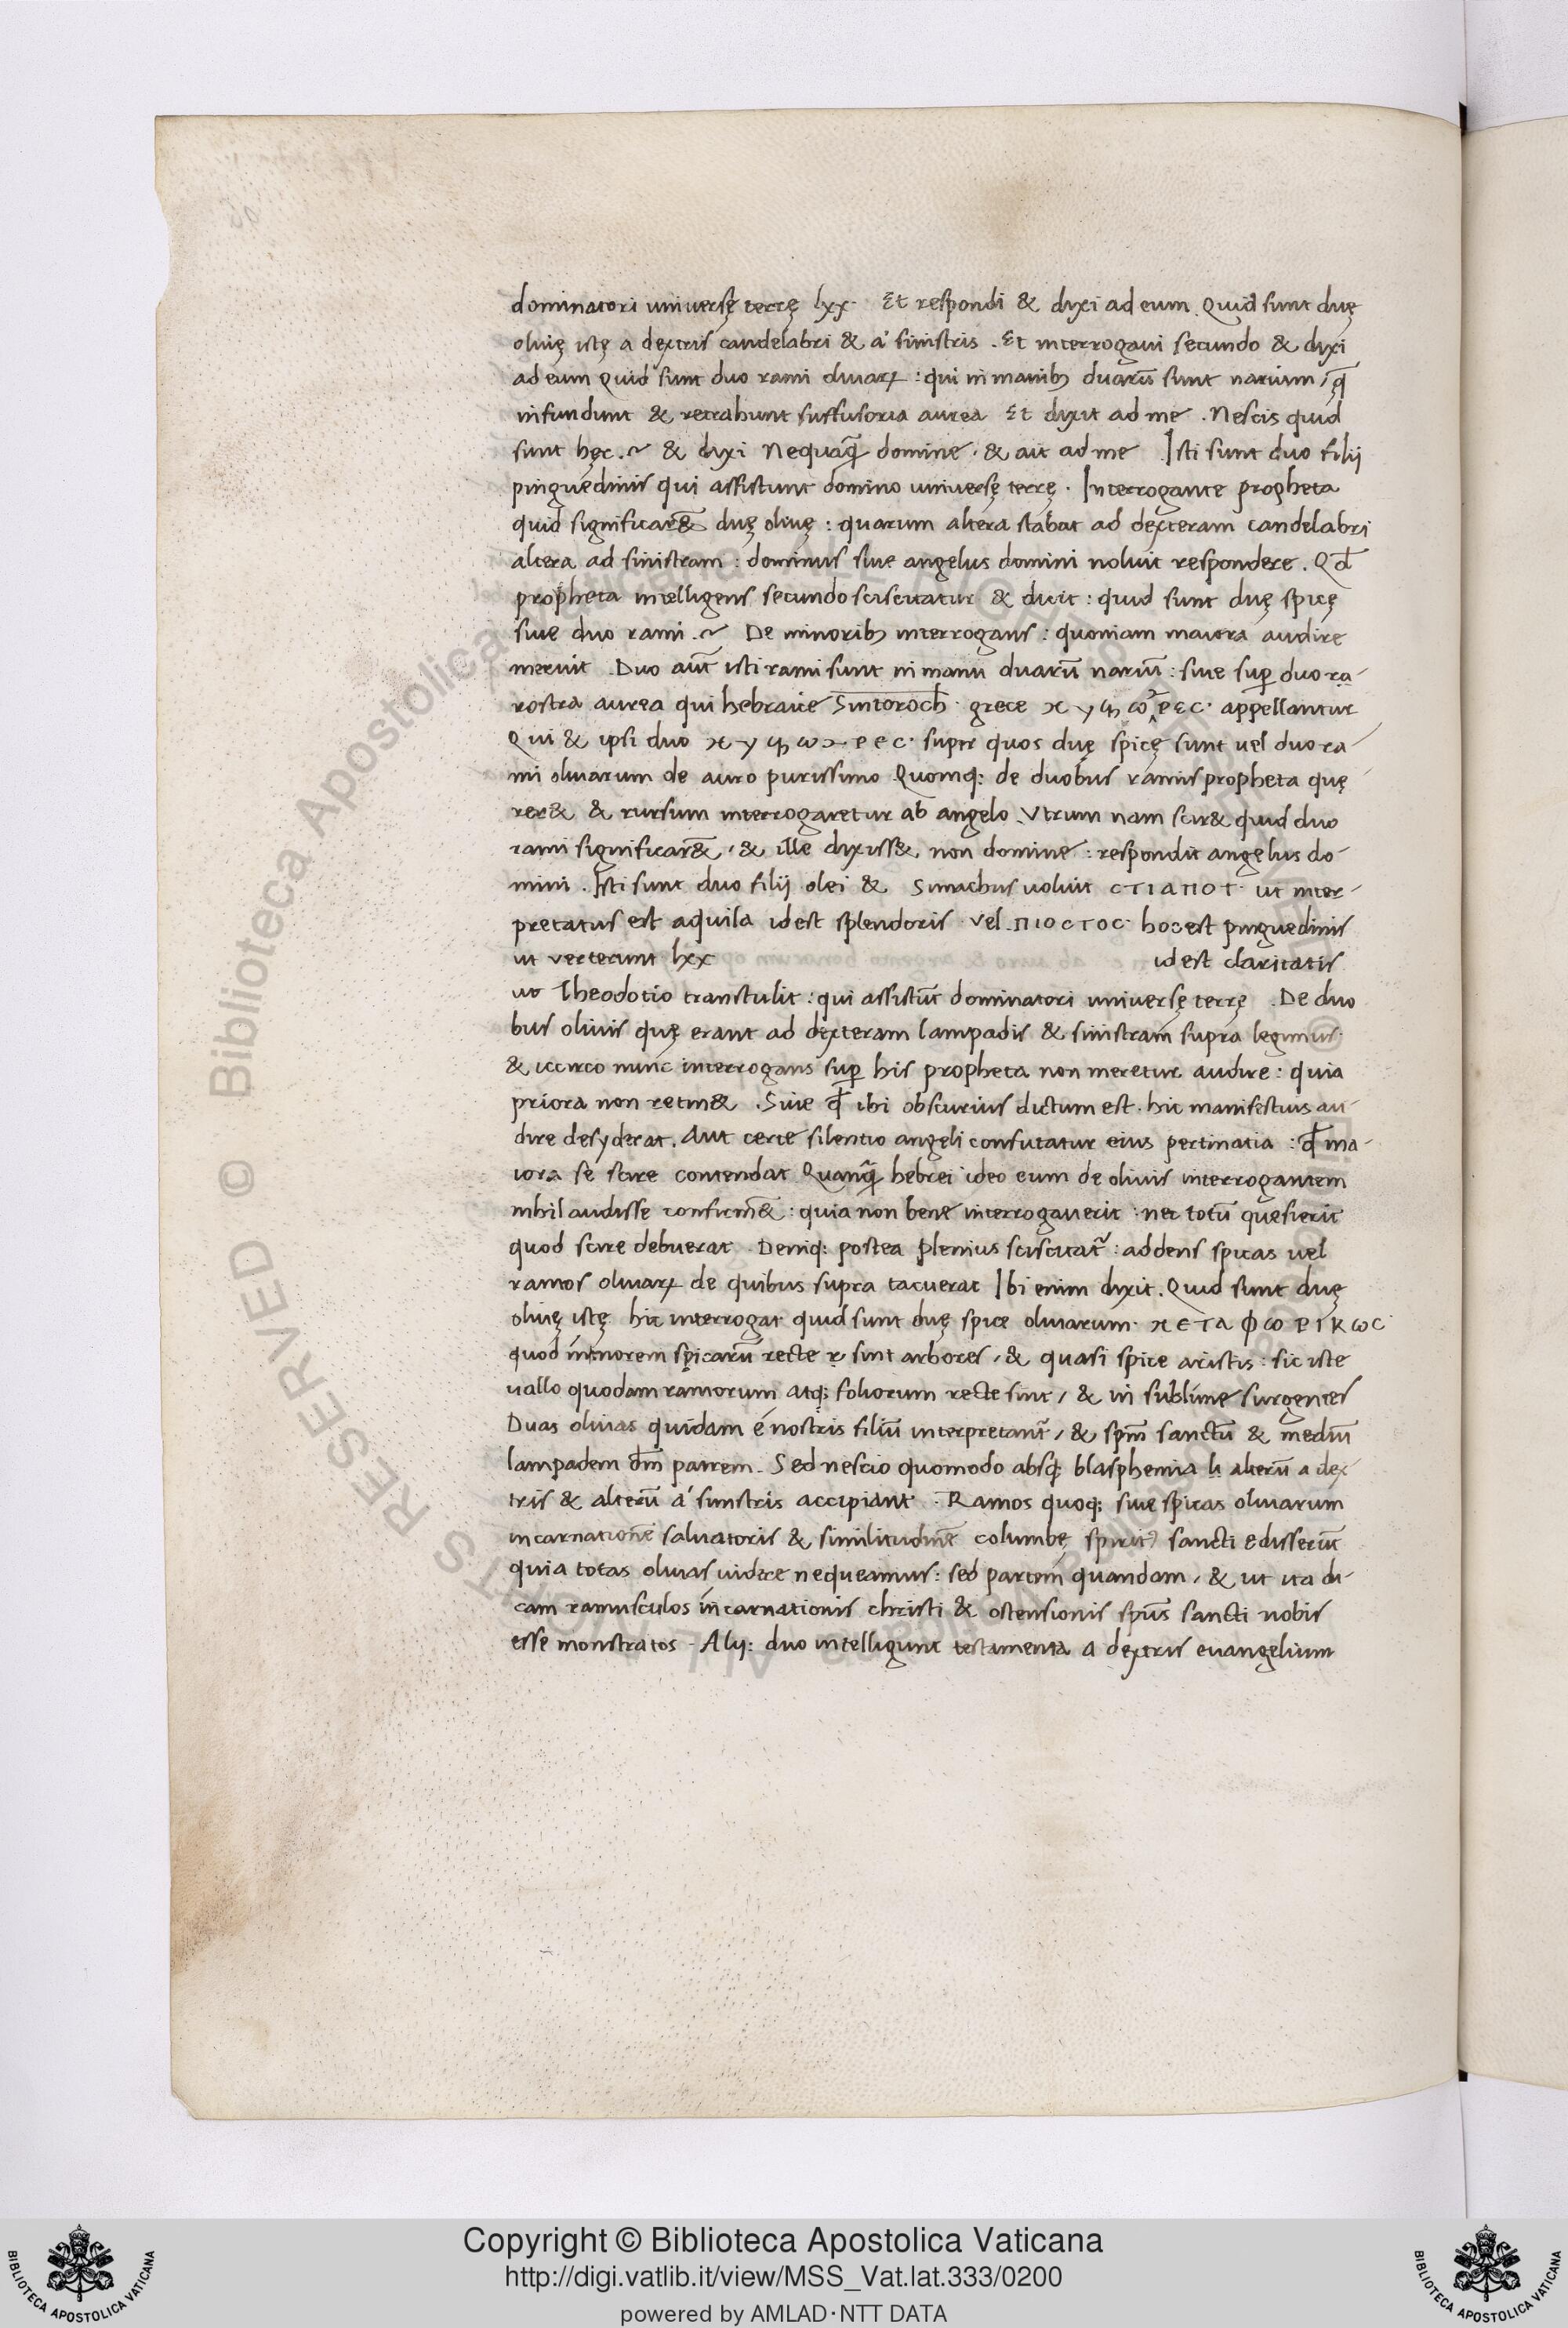 dominatori universę terrę lxx. Et respondi & dyxi ad eum. Quid sunt duę
oliuę istę a dextris candelabri & a' sinistris. Et interrogaui secundo & dyxi
ad eum Quid sunt duo rami oliuarꝝ : qui in manibꝫ duarū sunt narium, q̄
infundunt & retrahunt suffusoria aurea Et dyxit ad me. Nescis quid
sunt hęc.~ & dyxi Nequaꝙ̄ domine. & ait ad me Isti sunt duo filij
pinguedinis qui assistunt domino universę terrę. Interrogante propheta
quid significar&̄ duę oliuę : quarum altera stabat ad dexteram candelabri
altera ad sinistram : dominus siue angelus domini noluit respondere. Qd̄
propheta intelligens secundo sciscitatur & dicit : quid sunt duę spicę
siue duo rami.~ De minoribꝫ interrogans : quoniam maiora audire
meruit. Duo aūt isti rami sunt in manu duarū nariū : siue suꝑ duo ra-
rostra aurea qui hebraice Sintoroch. grece appellantur
Qui & ipsi duo super quos duę spicę sunt uel duo ra-
mi oliuarum de auro purissimo Quomqꝫ de duobus ramis propheta quę
rer& & rursum interrogaretur ab angelo Vtrum nam scir& quid duo
rami significar&̄, & ille dyxiss&, non domine : respondit angelus do-
mini. Isti sunt duo filij olei & Simachus uoluit CTIΛΠOT. ut inter-
pretatus est aquila id est splendoris vel ΠIOCTOC. hoc est pinguedinis
ut verterunt lxx id est claritatis
ut Theodotio transtulit : qui assistūt dominatori universę terrę. De duo
bus oliuis quę erant ad dexteram lampadis & sinistram supra legimus.
& iccirco nunc interrogans suꝑ his propheta non meretur audire : quia
priora non retin&. Siue qd̄ ibi obscurius dictum est. hic manifestius au-
dire desyderat. Aut certe silentio angeli confutatur eius pertinatia : qd̄ ma-
iora se scire contendat Quanꝙ̄ hebrei ideo eum de oliuis interrogantem
nihil audisse confirm&̄ : quia non bene interrogauerit : nec totū quesierit
quod scire debuerat. Deniqꝫ postea plenius sciscitat᷑ : addens spicas uel
ramos oliuarꝝ de quibus supra tacuerat Ibi enim dyxit. Quid sunt duę
oliuę istę hic interrogat quid sunt duę spice oliuarum. ϰETA ΦωPIKωC
quod in morem spicarū recte sint arbores, & quasi spice aristis : sic iste
uallo quodam ramorum atqꝫ foliorum recte sint, & in sublime surgentes
Duas oliuas quidam é nostris filiū interpretant᷑, & spm̄ sanctū & mediū
lampadem dm̄ patrem. Sed nescio quomodo absqꝫ blasphemia alterū a dex-
tris & alterū a' sinistris accipiant. Ramos quoqꝫ siue spicas oliuarum
incarnationē saluatoris & similitudinē columbę spiritꝰ sancti edisserūt
quia totas oliuas uidere nequeamus : sed partem quandam, & ut ita di-
cam ramusculos incarnationis christi & ostensionis spūs sancti nobis
esse monstratos. Alij : duo intelligunt testamenta a dextris euangelium
Copyright © Biblioteca Apostolica Vaticana
http://digi.vatlib.it/view/MSS_Vat.lat.333/0200
powered by AMLAD·NTT DATA